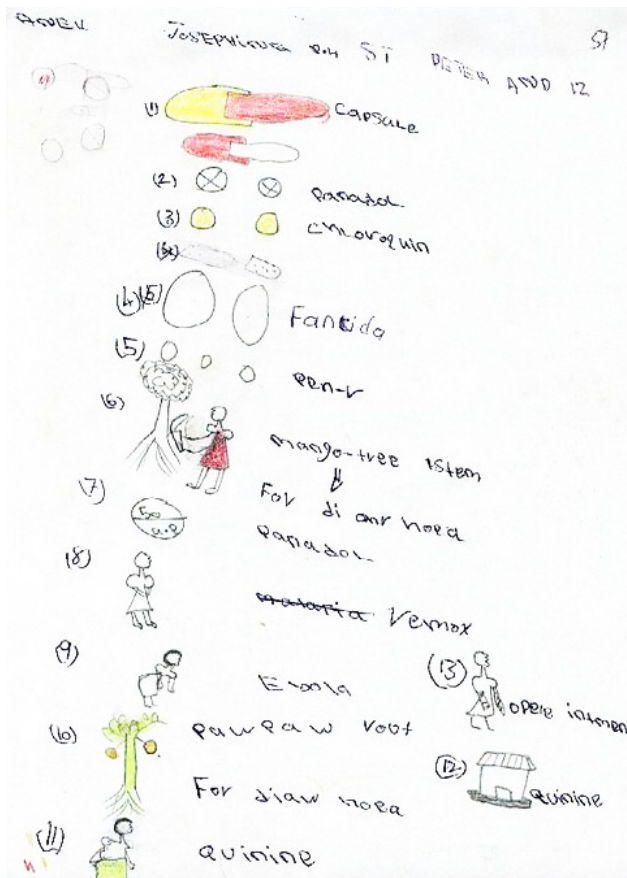 ANEK
JOSEPHINE P.4 ST PETER AND 12
57
(1) Capsule
(2) Panadol
(3) Chloroquin
(4) Fancida
(5) Pen-V
(6) mango-tree stem
For diarrhoea
(7) 50
Panadol
(8) malaria Vermox
(9) Ebola
(10) Paw Paw root
For diarrhoea
(11) Quinine
(13) opele intmen
(12) Quinine